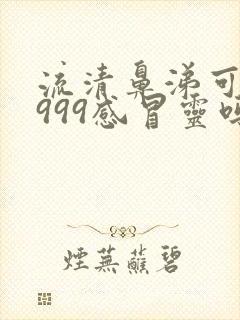 流清鼻涕可
999感冒靈
煙蕪蘸碧